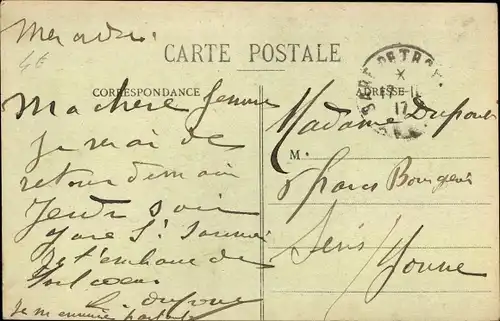 Mercredi
4€
CARTE POSTALE
CORRESPONDANCE
ADRESSE
17 - 11
17
Ma chère femme
Je serai de
retour demain
Jeudi soir
Gare St
Je t'embrasse de
tout coeur
Dufour
Je m'ennuie partout
Madame Dufour
M.
Bourgeois
Sens
Yonne